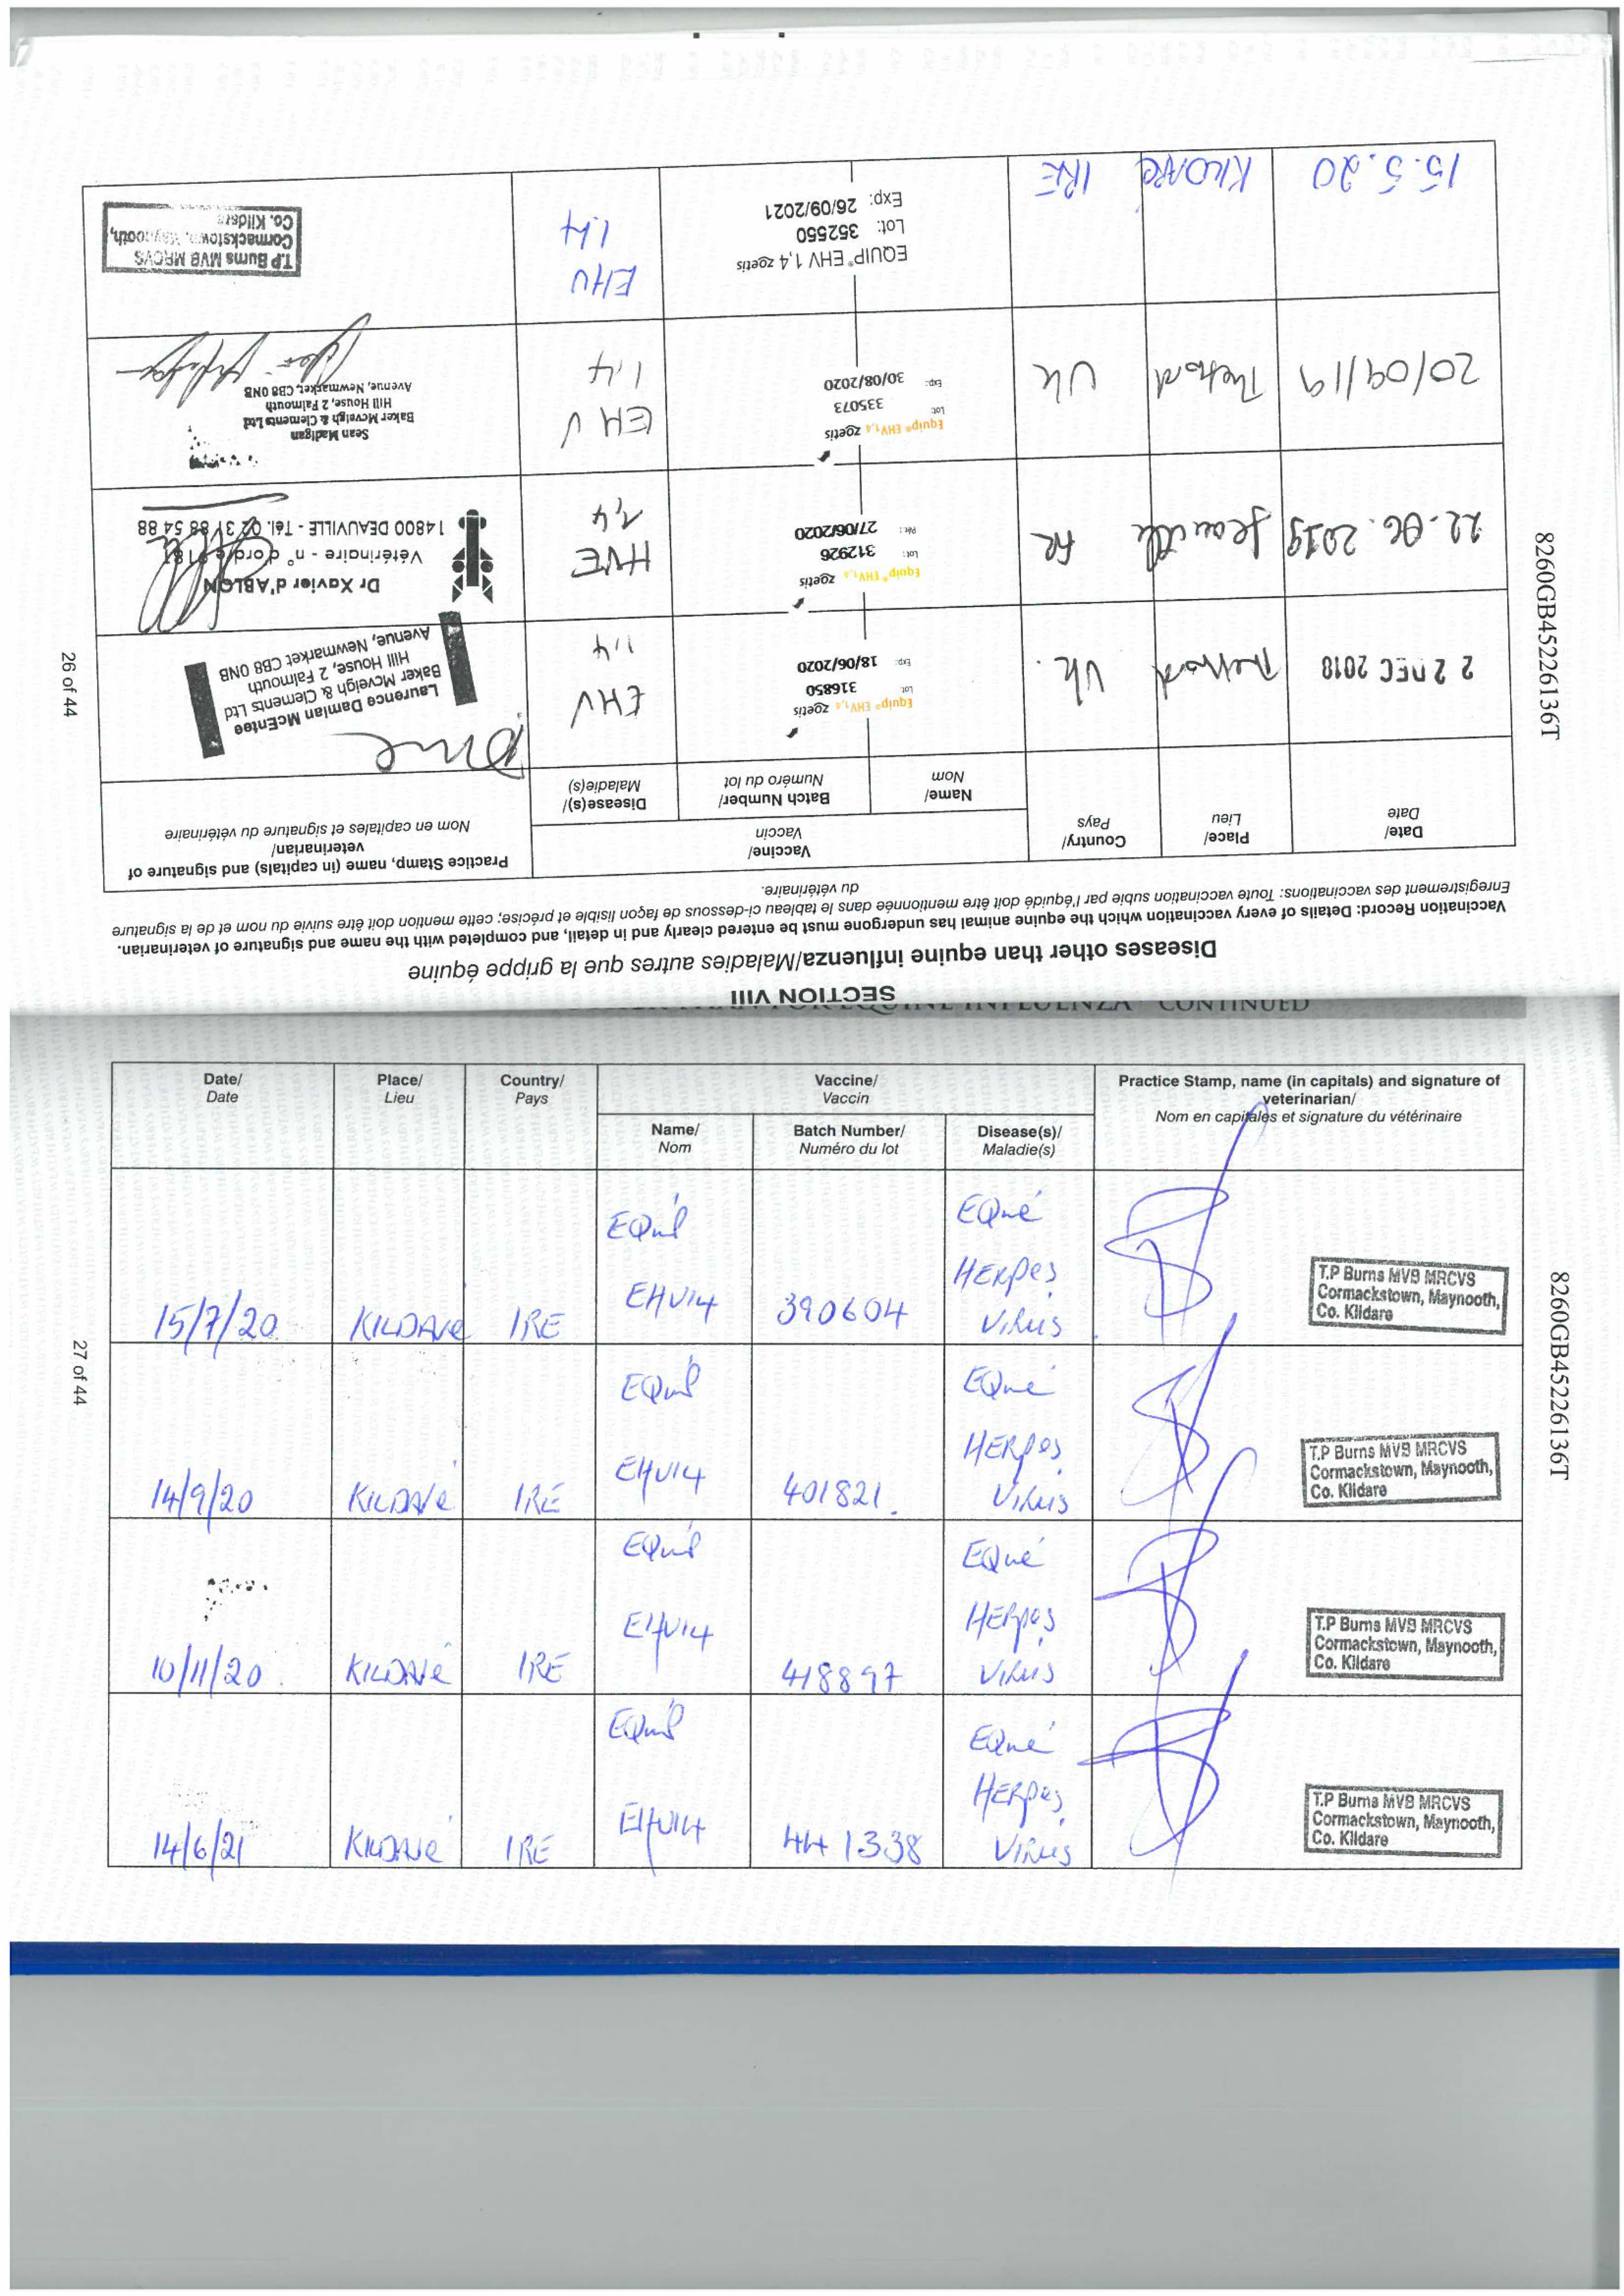 SECTION VIII
Diseases other than equine influenza/Maladies autres que la grippe équine
Vaccination Record: Details of every vaccination which the equine animal has undergone must be entered clearly and in detail, and completed with the name and signature of veterinarian.
Enregistrement des vaccinations: Toute vaccination subie par l'équidé doit être mentionnée dans le tableau ci-dessous de façon lisible et précise; cette mention doit être suivie du nom et de la signature
du vétérinaire.
Date/
Date
Place/
Lieu
Country/
Pays
Vaccine/
Vaccin
Name/
Nom
Batch Number/
Numéro du lot
Disease(s)/
Maladie(s)
Practice Stamp, name (in capitals) and signature of
veterinarian/
Nom en capitales et signature du vétérinaire
22 DEC 2018
Uk.
Equip® EHV1,4 zoetis
Lot 316850
Exp: 18/06/2020
EHV
1,4
Laurence Damian McEntee
Baker Mcveigh & Clements Ltd
Hill House, 2 Palmouth
Avenue, Newmarket CB8 0NB
22.06.2019
Deauville
FR
Equip® EHV1,4 zoetis
Lot: 312926
Pér.: 27/06/2020
HVE
1,4
Dr Xavier d'ABLON
Vétérinaire - n° d'ordre
14800 DEAUVILLE - Tél. 02 31 88 54 88
20/09/19
Uk
Equip® EHV1,4 zoetis
Lot: 335073
Exp: 30/08/2020
EHV
1,4
Sean Madigan
Baker Mcveigh & Clements Ltd
Hill House, 2 Palmouth
Avenue, Newmarket, CB8 0NB
15.5.20
KILDARE
IRE
EQUIP® EHV 1,4 zoetis
Lot: 352550
Exp: 26/09/2021
EHV
1.4
T.P Burns MVB MRCVS
Cormackstown, Maynooth,
Co. Kildare
26 of 44
8260GB45226136T
EQUINE INFLUENZA CONTINUED
Date/
Date
Place/
Lieu
Country/
Pays
Vaccine/
Vaccin
Name/
Nom
Batch Number/
Numéro du lot
Disease(s)/
Maladie(s)
Practice Stamp, name (in capitals) and signature of
veterinarian/
Nom en capitales et signature du vétérinaire
15/7/20
KILDARE
IRE
EQuiP
EHV14
390604
EQue
HERpes
VIRus
T.P Burns MVB MRCVS
Cormackstown, Maynooth,
Co. Kildare
14/9/20
KILDARE
IRE
EQuiP
EHV14
401821.
EQue
HERpes
VIRus
T.P Burns MVB MRCVS
Cormackstown, Maynooth,
Co. Kildare
10/11/20
KILDARE
IRE
EQuiP
EHV14
418897
EQue
HERpes
VIRus
T.P Burns MVB MRCVS
Cormackstown, Maynooth,
Co. Kildare
14/6/21
KILDARE
IRE
EQuiP
EHV14
441338
EQue
HERpes
VIRus
T.P Burns MVB MRCVS
Cormackstown, Maynooth,
Co. Kildare
27 of 44
8260GB45226136T